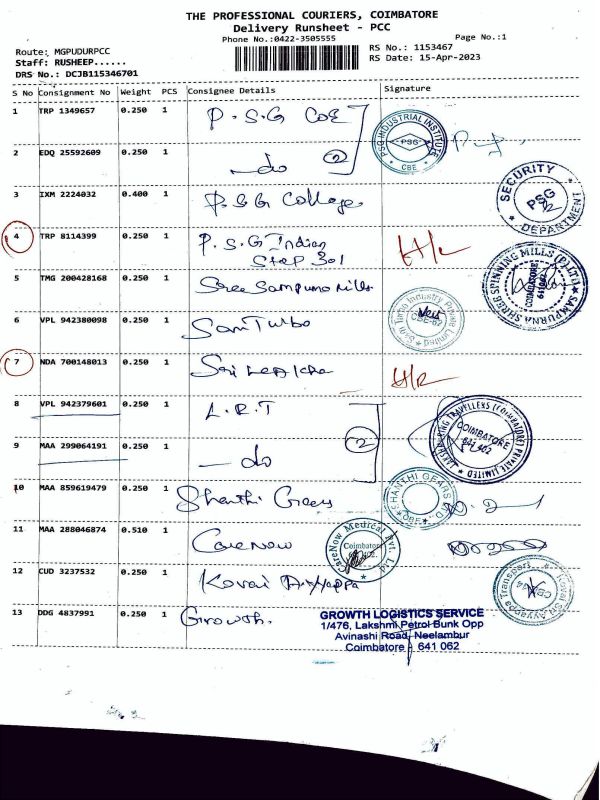 THE PROFESSIONAL COURIERS, COIMBATORE
Delivery Runsheet - PCC
Phone No.:0422-3505555
Page No.:1
Route: MGPUDURPCC
RS No.: 1153467
Staff: RUSHEEP......
RS Date: 15-Apr-2023
DRS No.: DCJB115346701
S No Consignment No Weight PCS Consignee Details Signature
1 TRP 1349657 0.250 1 P.S.G COE
PSG INDUSTRIAL INSTITUTE
PSG
CBE
2 EDQ 25592609 0.250 1 do 2
3 IXM 2224032 0.400 1 P.S.G College
SECURITY
PSG
DEPARTMENT
4 TRP 8114399 0.250 1 P.S.G Indian
5 TMG 200428168 0.250 1 Sree Sampurna Mills
SAMPURNA SHREE SPINNING MILLS (P) LTD
COIMBATORE
6 VPL 942380098 0.250 1 Sam Turbo
Sam Turbo Industry Private Limited
CBE-62
7 NDA 700148013 0.250 1 Sri Lekha
8 VPL 942379601 0.250 1 L.R.T
TRAVELLERS (COIMBATORE) PRIVATE LIMITED
COIMBATORE
641 402
9 MAA 299064191 0.250 1 do 2
10 MAA 859619479 0.250 1 Shanthi Gears
SHANTHI GEARS LTD.
CBE
11 MAA 288046874 0.510 1 CareNow
CareNow Medical Pvt. Ltd
Coimbatore
12 CUD 3237532 0.250 1 Kovai Ayyappa
Kovai Sri Ayyappa Transport
13 DDG 4837991 0.250 1 Growth.
GROWTH LOGISTICS SERVICE
1/476, Lakshmi Petrol Bunk Opp
Avinashi Road, Neelambur
Coimbatore - 641 062